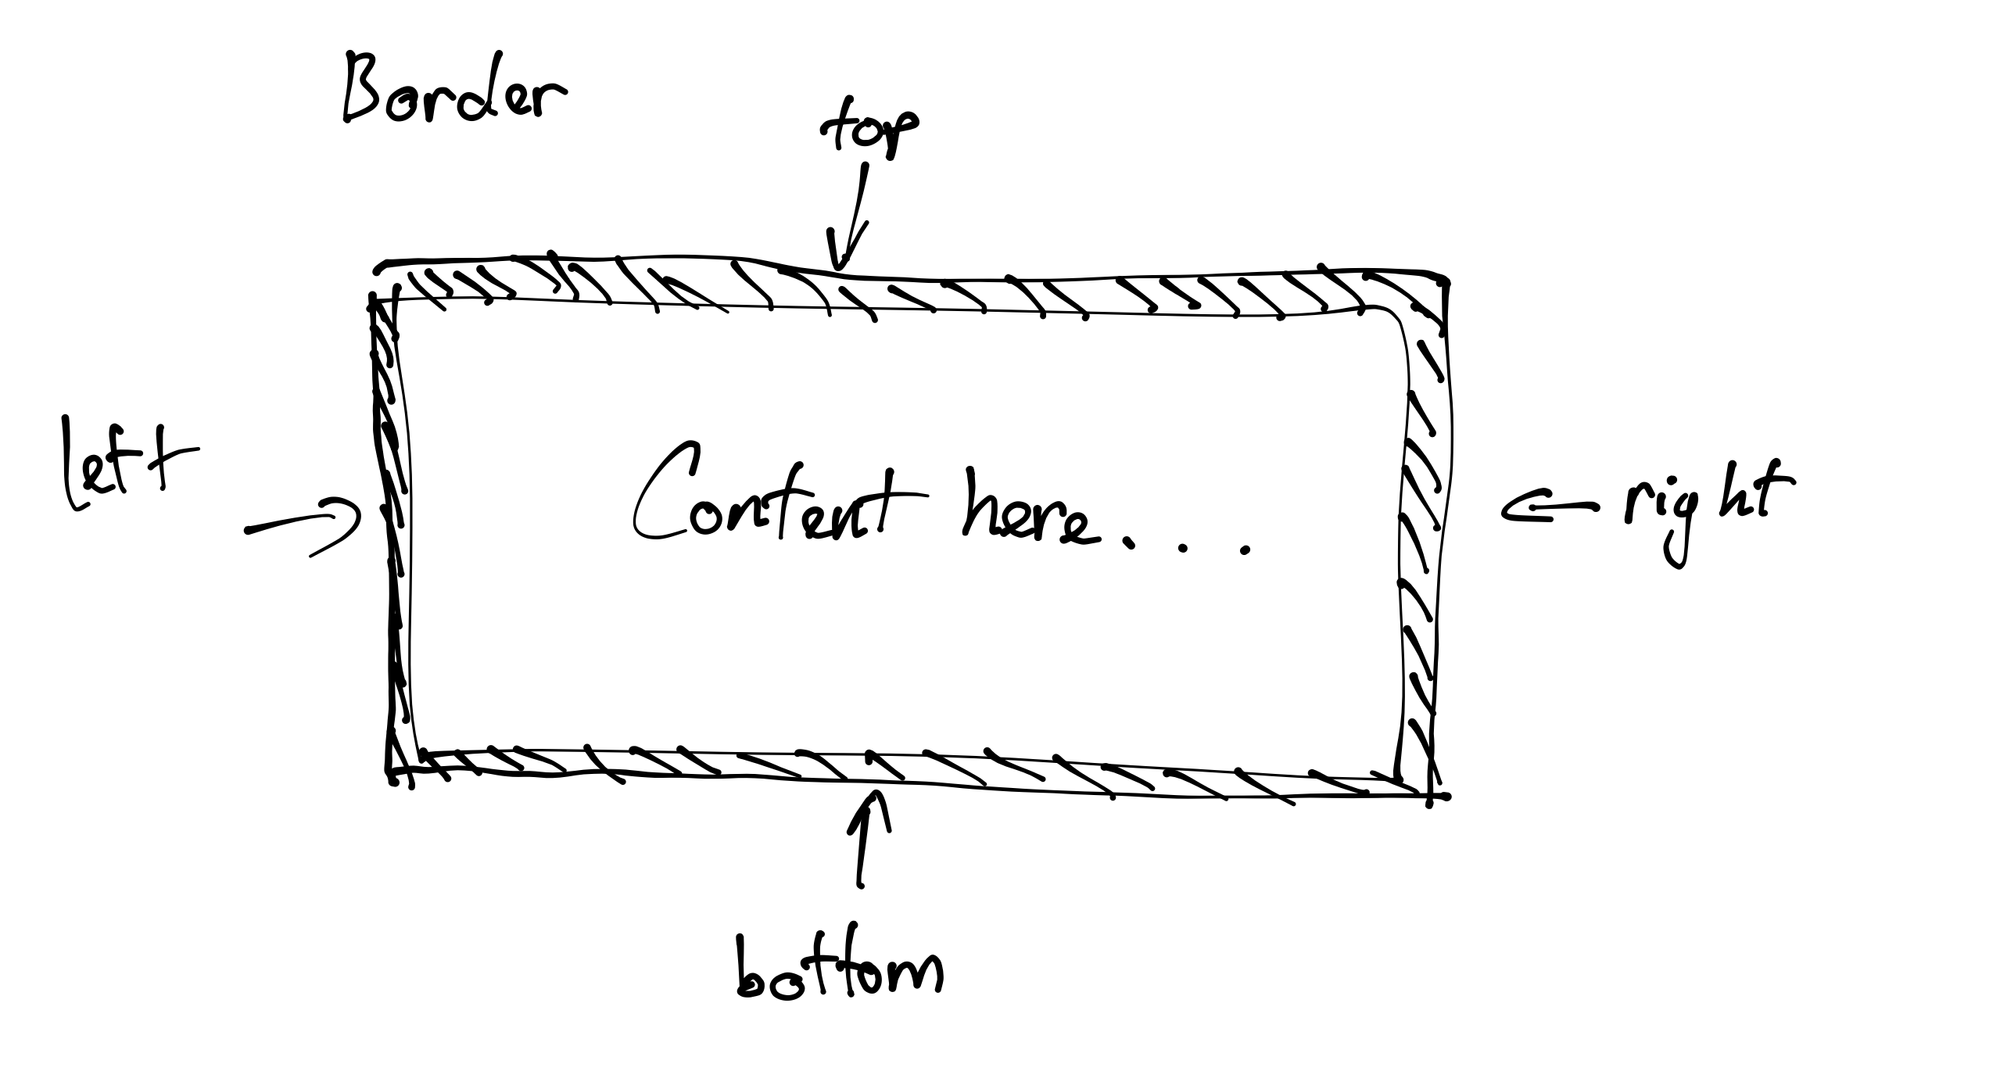 Border
top
left
Content here...
right
bottom